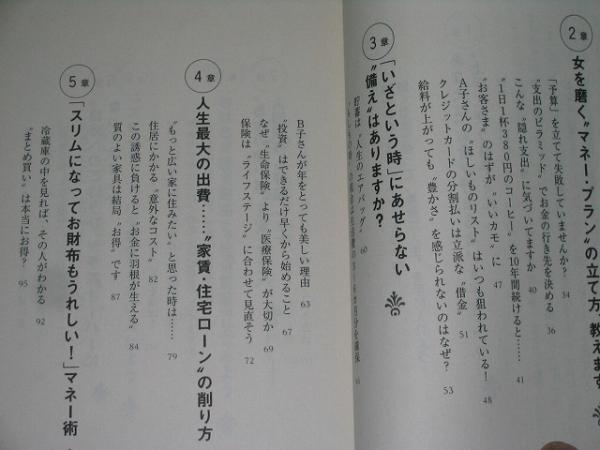 2章
女を磨く"マネー・プラン"の立て方、教えます
「予算」を立てて失敗していませんか? 34
"支出のピラミッド"でお金の行き先を決める 36
こんな"隠れ支出"に気づいてますか 40
"1日1杯380円のコーヒー"を10年間続けると…… 41
"お客さま"のはずが"いいカモ"に 47
A子さんの"ほしいものリスト"はいつも狙われている! 48
クレジットカードの分割払いは立派な"借金" 51
給料が上がっても、"豊かさ"を感じられないのはなぜ? 53
3章
「いざという時」にあせらない
"備え"はありますか?
貯蓄は"人生のエアバッグ" 60
B子さんが年をとっても美しい理由 63
"投資"はできるだけ早くから始めること 67
なぜ"生命保険"より"医療保険"が大切か 69
保険は"ライフステージ"に合わせて見直そう 72
4章
人生最大の出費……"家賃・住宅ローン"の削り方
"もっと広い家に住みたい"と思った時は…… 79
住居にかかる"意外なコスト" 82
この誘惑に負けると"お金に羽根が生える" 84
質のよい家具は結局"お得"です 87
5章
「スリムになってお財布もうれしい!」マネー術
冷蔵庫の中を見れば、その人がわかる 92
"まとめ買い"は本当にお得? 95